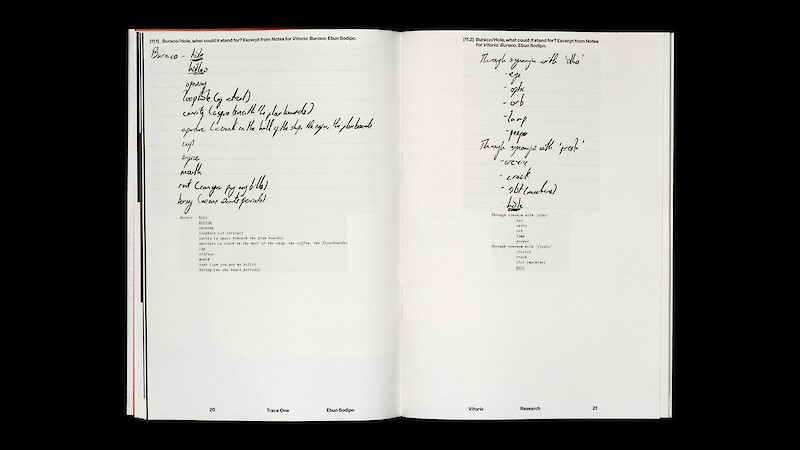 [11.1] Buraco/Hole, what could it stand for? Excerpt from Notes for Vitoria: Buraco, Ebun Sodipo.
Buraco - hole
hollow
opening
loophole (of retreat)
cavity (a space beneath the plan boards)
aperture (a crack in the hull of the ship, the coffin, the floorboards
cup
orifice
mouth
rent (can you pay my bills)
boring
Buraco - hole
hollow
opening
loophole (of retreat)
cavity (a space beneath the plan boards)
aperture (a crack in the hull of the ship, the coffin, the floorboards)
cup
orifice
mouth
rent (can you pay my bills)
boring
20 Trace One Ebun Sodipo
[11.2] Buraco/Hole, what could it stand for? Excerpt from Notes
for Vitoria: Buraco, Ebun Sodipo.
Through synonym with 'olho'
- eye
- optic
- orb
- lamp
- peeper
Through synonym with 'fresta'
- crevice
- crack
- slot (machine)
- hole
Through synonym with 'olho'
eye
optic
orb
lamp
peeper
Through synonym with 'fresta'
crevice
crack
slot (machine)
hole
Vitoria Research 21